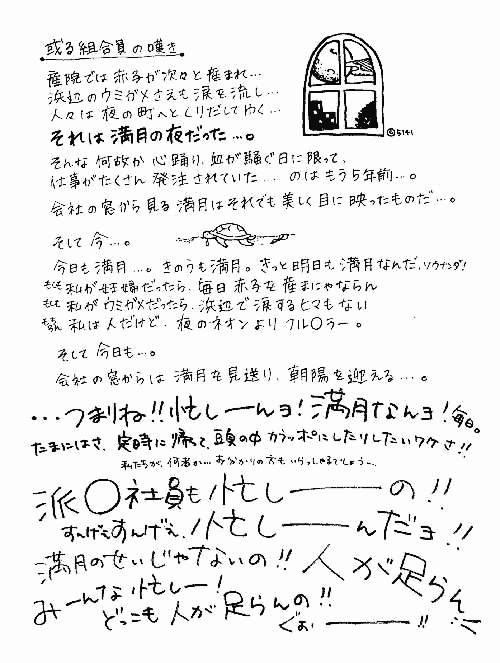 或る組合員の嘆き
産院では赤子が次々と産まれ…
浜辺のウミガメさえも涙を流し…
人々は夜の町へとくりだしてゆく…
それは満月の夜だった…。
©5141
そんな何故か心踊り、血が騒ぐ日に限って、
仕事がたくさん発注されていた…のはもう5年前…。
会社の窓から見る満月はそれでも美しく目に映ったものだ…。
そして今…。
今日も満月…。きのうも満月。きっと明日も満月なんだ、ソウナンダ!
もしも私が妊婦だったら、毎日赤子を産まにゃならん
もしも私がウミガメだったら、浜辺で涙するヒマもない
私は人だけど、夜のネオンよりフル〇うー。
そして今日も…。
会社の窓からは満月を見送り、朝陽を迎える…。
…つまりね!!忙しーんョ!満月なんョ!毎日。
たまにはさ、定時に帰って、頭の中カラッポにしたりしたいワケさ!!
私たちが、何者か…おわかりの方もいらっしゃるでしょう…、
派〇社員も忙しーーの!!
すんげぇすんげぇ、忙しーーんだョ!!
満月のせいじゃないの!!人が足らん
みーんな忙しー!
どっこも人が足らんの!!
ぐぉ、ーー!!